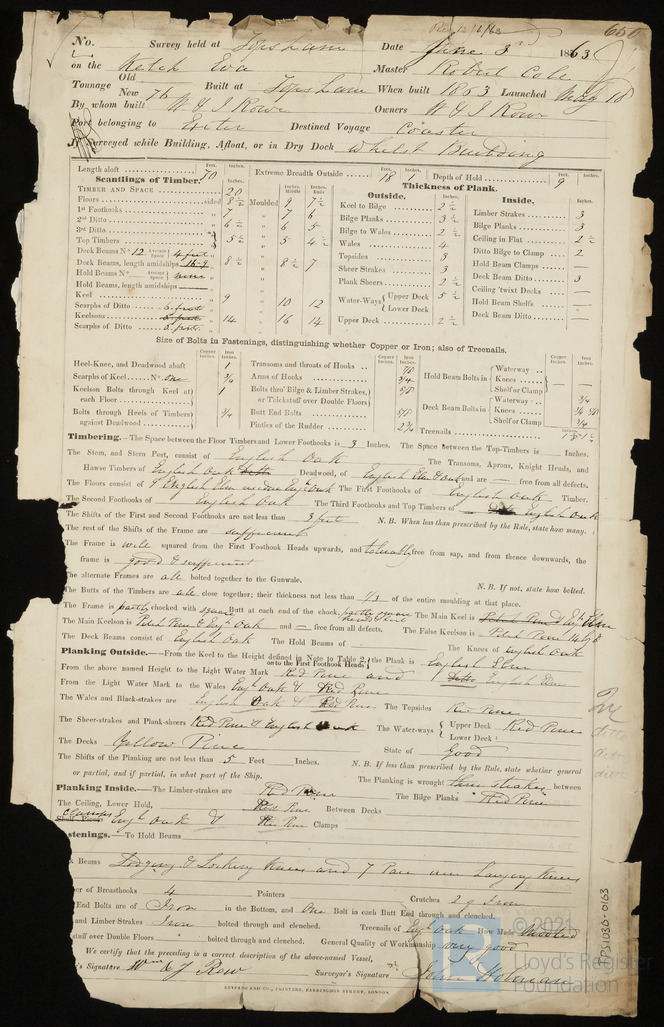 650
No. Survey held at Topsham Date June 3rd 1863
on the Ketch Eva Master Robert Cole
Tonnage Old New 76 Built at Topsham When built 1863 Launched May 18
By whom built W & J Row Owners W & J Row
Port belonging to Exeter Destined Voyage Coaster
If Surveyed while Building, Afloat, or in Dry Dock Whilst Building
Length aloft 70 Extreme Breadth Outside 18 1 Depth of Hold 9
Feet. Inches. Feet. Inches. Feet. Inches.
Scantlings of Timber. Thickness of Plank.
Inches. Inches Middle Inches Ends Outside. Inches. Inside. Inches.
TIMBER AND SPACE 20
Floors sided 8½ Moulded 9 7½ Keel to Bilge 2½ Limber Strakes 3
1st Foothooks 7 7 6 Bilge Planks 3½ Bilge Planks 3
2nd Ditto 6½ 6 5 Bilge to Wales 2½ Ceiling in Flat 2½
3rd Ditto Wales 4 Ditto Bilge to Clamp 2
Top Timbers 5½ 5 4½ Topsides 3 Hold Beam Clamps —
Deck Beams No. 12 Average Space 4 feet Sheer Strakes 3 Deck Beam Ditto 3
Deck Beams, length amidships 16-9 8½ 8½ 7 Plank Sheers 2½ Ceiling 'twixt Decks —
Hold Beams No. Average Space none
Hold Beams, length amidships — Water-Ways Upper Deck 5½ Lower Deck Hold Beam Shelfs —
Keel 9 10 12 Deck Beam Ditto —
Scarphs of Ditto 5 feet
Keelsons 14 16 14 Upper Deck 2½
Scarphs of Ditto 5 feet
Size of Bolts in Fastenings, distinguishing whether Copper or Iron; also of Treenails.
Copper Inches. Iron Inches. Copper Inches. Iron Inches. Copper Inches. Iron Inches.
Heel-Knee, and Deadwood abaft 1 Transoms and throats of Hooks 7/8 Hold Beam Bolts in Waterway
Scarphs of Keel No. one 3/4 Arms of Hooks 3/4 Knees —
Keelson Bolts through Keel at each Floor 1 Bolts thro' Bilge & Limber Strakes, or Thickstuff over Double Floors 5/8 Shelf or Clamp
Bolts through Heels of Timbers against Deadwood 3/4 Butt End Bolts 5/8 Deck Beam Bolts in Waterway 3/4
Pintles of the Rudder 2¾ Knees 3/4 5/8
Shelf or Clamp 3/4
Treenails
Timbering.—The Space between the Floor Timbers and Lower Foothooks is 3 Inches. The Space between the Top-Timbers is — Inches.
The Stem, and Stern Post, consist of English Oak The Transoms, Aprons, Knight Heads, and
Hawse Timbers of English Oak Deadwood, of English Elm & Oak and are — free from all defects.
The Floors consist of The First Foothooks of English Oak Timber.
The Second Foothooks of English Oak The Third Foothooks and Top Timbers of English Oak
The Shifts of the First and Second Foothooks are not less than 3 feet N.B. When less than prescribed by the Rule, state how many.
The rest of the Shifts of the Frame are sufficient
The Frame is well squared from the First Foothook Heads upwards, and tolerably free from sap, and from thence downwards, the
frame is good & sufficient
The alternate Frames are all bolted together to the Gunwale. N.B. If not, state how bolted.
The Butts of the Timbers are all close together; their thickness not less than 1/3 of the entire moulding at that place.
The Frame is partly chocked with square Butt at each end of the chock, The Main Keel is Engh Elm
The Main Keelson is Pitch Pine & Engh Oak and — free from all defects. The False Keelson is Pitch Pine
The Deck Beams consist of English Oak The Hold Beams of — The Knees of English Oak
Planking Outside.—From the Keel to the Height defined in Note to Table 2, the Plank is English Elm
on to the First Foothook Heads
From the above named Height to the Light Water Mark Red Pine and English Elm
From the Light Water Mark to the Wales Engh Oak & Red Pine
The Wales and Black-strakes are English Oak & Red Pine The Topsides Red Pine
The Sheer-strakes and Plank-sheers Red Pine & English Oak The Water-ways Upper Deck Red Pine Lower Deck
The Decks Yellow Pine State of Good
The Shifts of the Planking are not less than 5 Feet Inches. N.B. If less than prescribed by the Rule, state whether general
or partial, and if partial, in what part of the Ship. The Planking is wrought three strakes between
Planking Inside.—The Limber-strakes are Red Pine The Bilge Planks Red Pine
The Ceiling, Lower Hold, Red Pine Between Decks
Clamps Engh Oak & Red Pine Clamps
astenings.—To Hold Beams
k Beams Lodging & Locking Knees and 7 Pair iron Hanging Knees
er of Breasthooks 4 Pointers Crutches 2 of Iron
End Bolts are of Iron in the Bottom, and One Bolt in each Butt End through and clenched.
and Limber Strakes Iron bolted through and clenched. Treenails of Engh Oak How Made Mooted
stuff over Double Floors bolted through and clenched. General Quality of Workmanship very good
We certify that the preceding is a correct description of the above-named Vessel,
's Signature Wm & J Row Surveyor's Signature John Holman
SEYFANG AND CO., PRINTERS, FARRINGDON STREET, LONDON.
© 2021
Lloyd's Register
Foundation